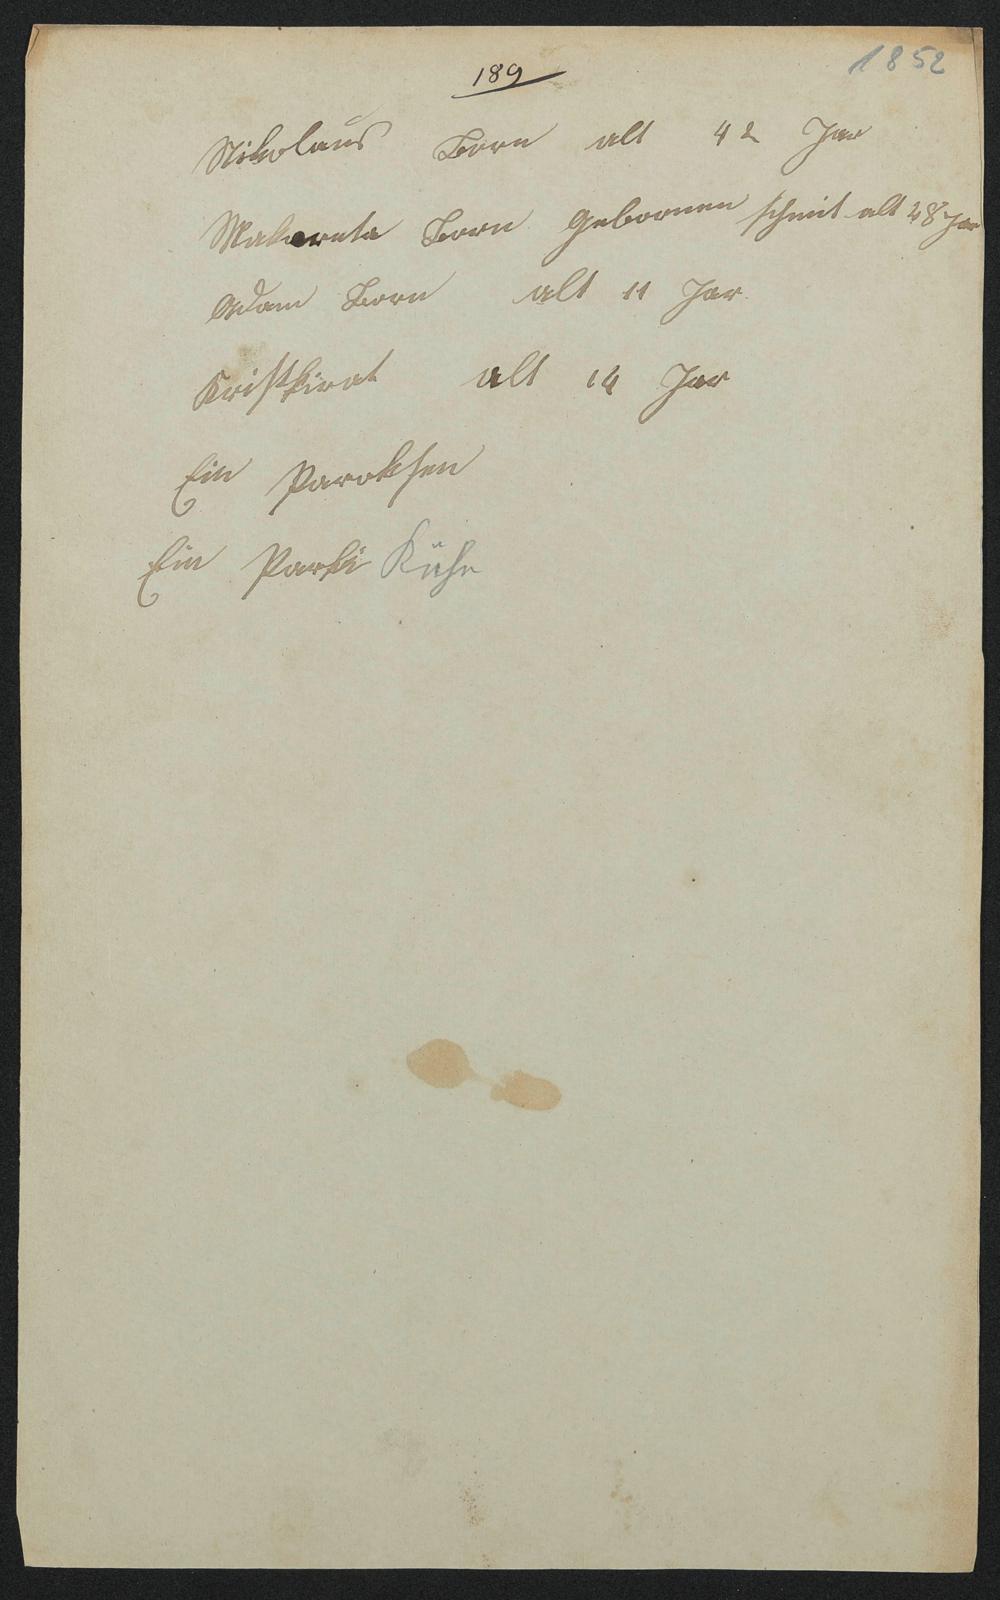 189
1852
Nikolaus Born alt 42 Jar
Makareta Born gebornen schmit alt 48 Jar
Adam Born alt 11 Jar
alt 14 Jar
Ein Par oksen
Ein Par Kühe